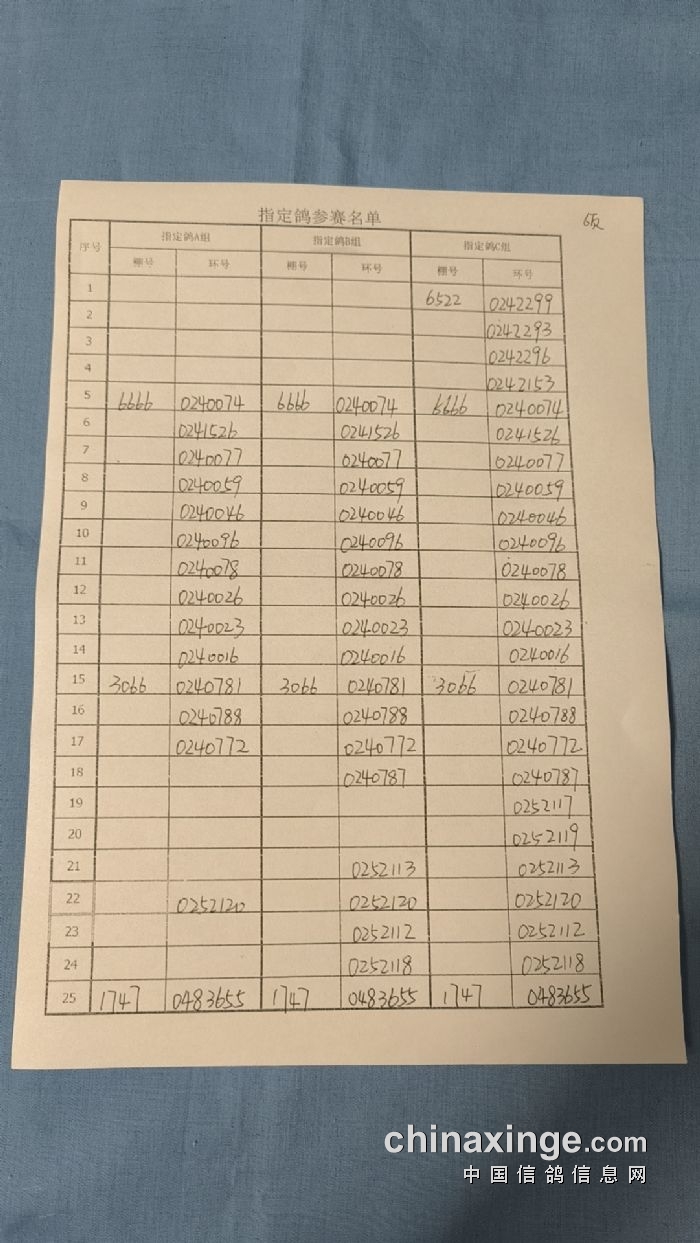 指定鸽参赛名单 6反
序号 指定鸽A组 指定鸽B组 指定鸽C组
棚号 环号 棚号 环号 棚号 环号
1 6522 0242299
2 0242293
3 0242296
4 0242153
5 6666 0240074 6666 0240074 6666 0240074
6 0241526 0241526 0241526
7 0240077 0240077 0240077
8 0240059 0240059 0240059
9 0240046 0240046 0240046
10 0240096 0240096 0240096
11 0240078 0240078 0240078
12 0240026 0240026 0240026
13 0240023 0240023 0240023
14 0240016 0240016 0240016
15 3066 0240781 3066 0240781 3066 0240781
16 0240788 0240788 0240788
17 0240772 0240772 0240772
18 0240787 0240787
19 0252117
20 0252119
21 0252113 0252113
22 0252120 0252120 0252120
23 0252112 0252112
24 0252118 0252118
25 1747 0483655 1747 0483655 1747 0483655
chinaxinge.com
中国信鸽信息网